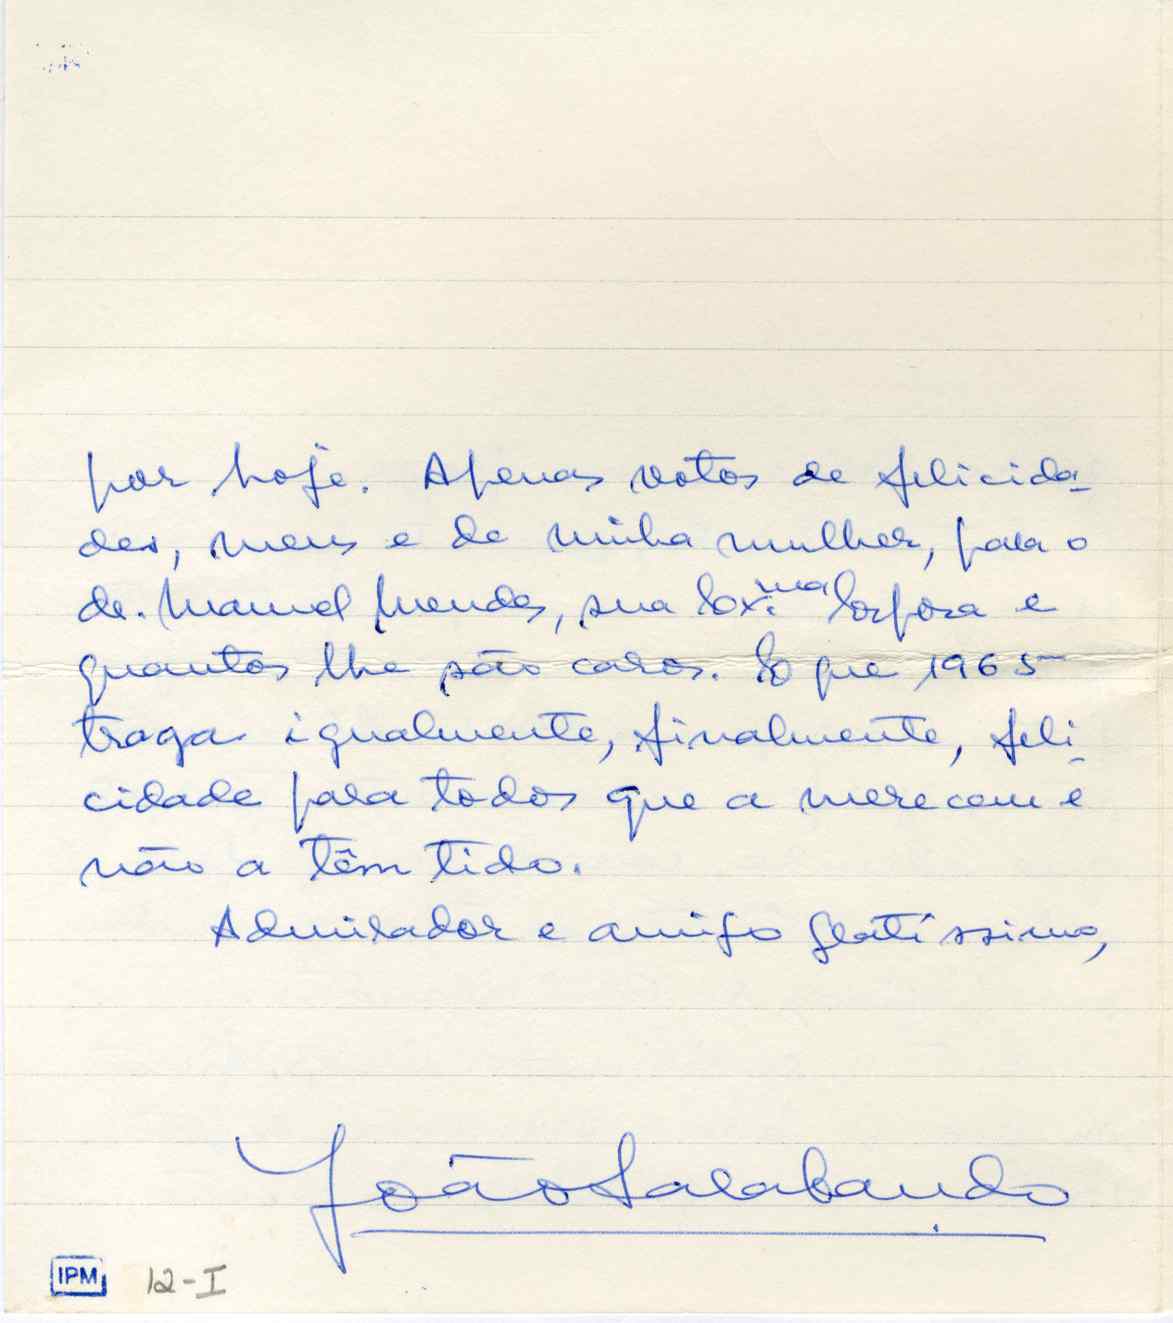 por hoje. Apenas votos de felicida-
des, meus e de minha mulher, para o
dr. Manuel Mendes, sua Ex.ma Esposa e
quantos lhe são caros. E que 1965
traga igualmente, finalmente, feli-
cidade para todos que a merecem e
não a têm tido.
Admirador e amigo gratíssimo,
João Sarabando
IPM 12-I